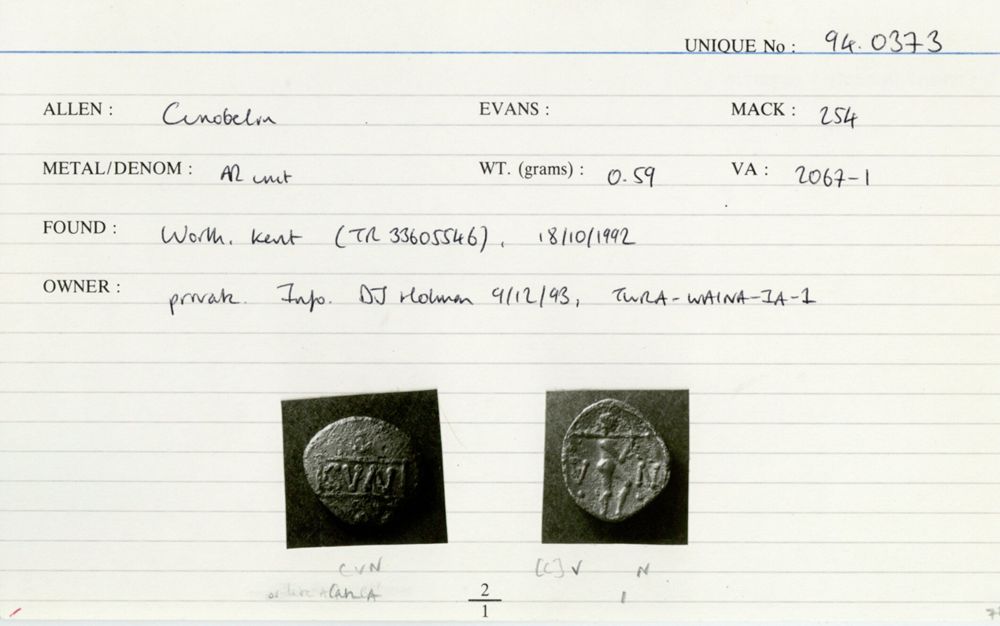 UNIQUE No : 94.0373
ALLEN : Cunobelin EVANS : MACK : 254
METAL/DENOM : AR unit WT. (grams) : 0.59 VA : 2067-1
FOUND : Worth, Kent (TR 33605546), 18/10/1992
OWNER : private. Info. DJ Holman 9/12/93, TWRA-WAINA-IA-1
CVN
V N
CVN [C] V N
2
1